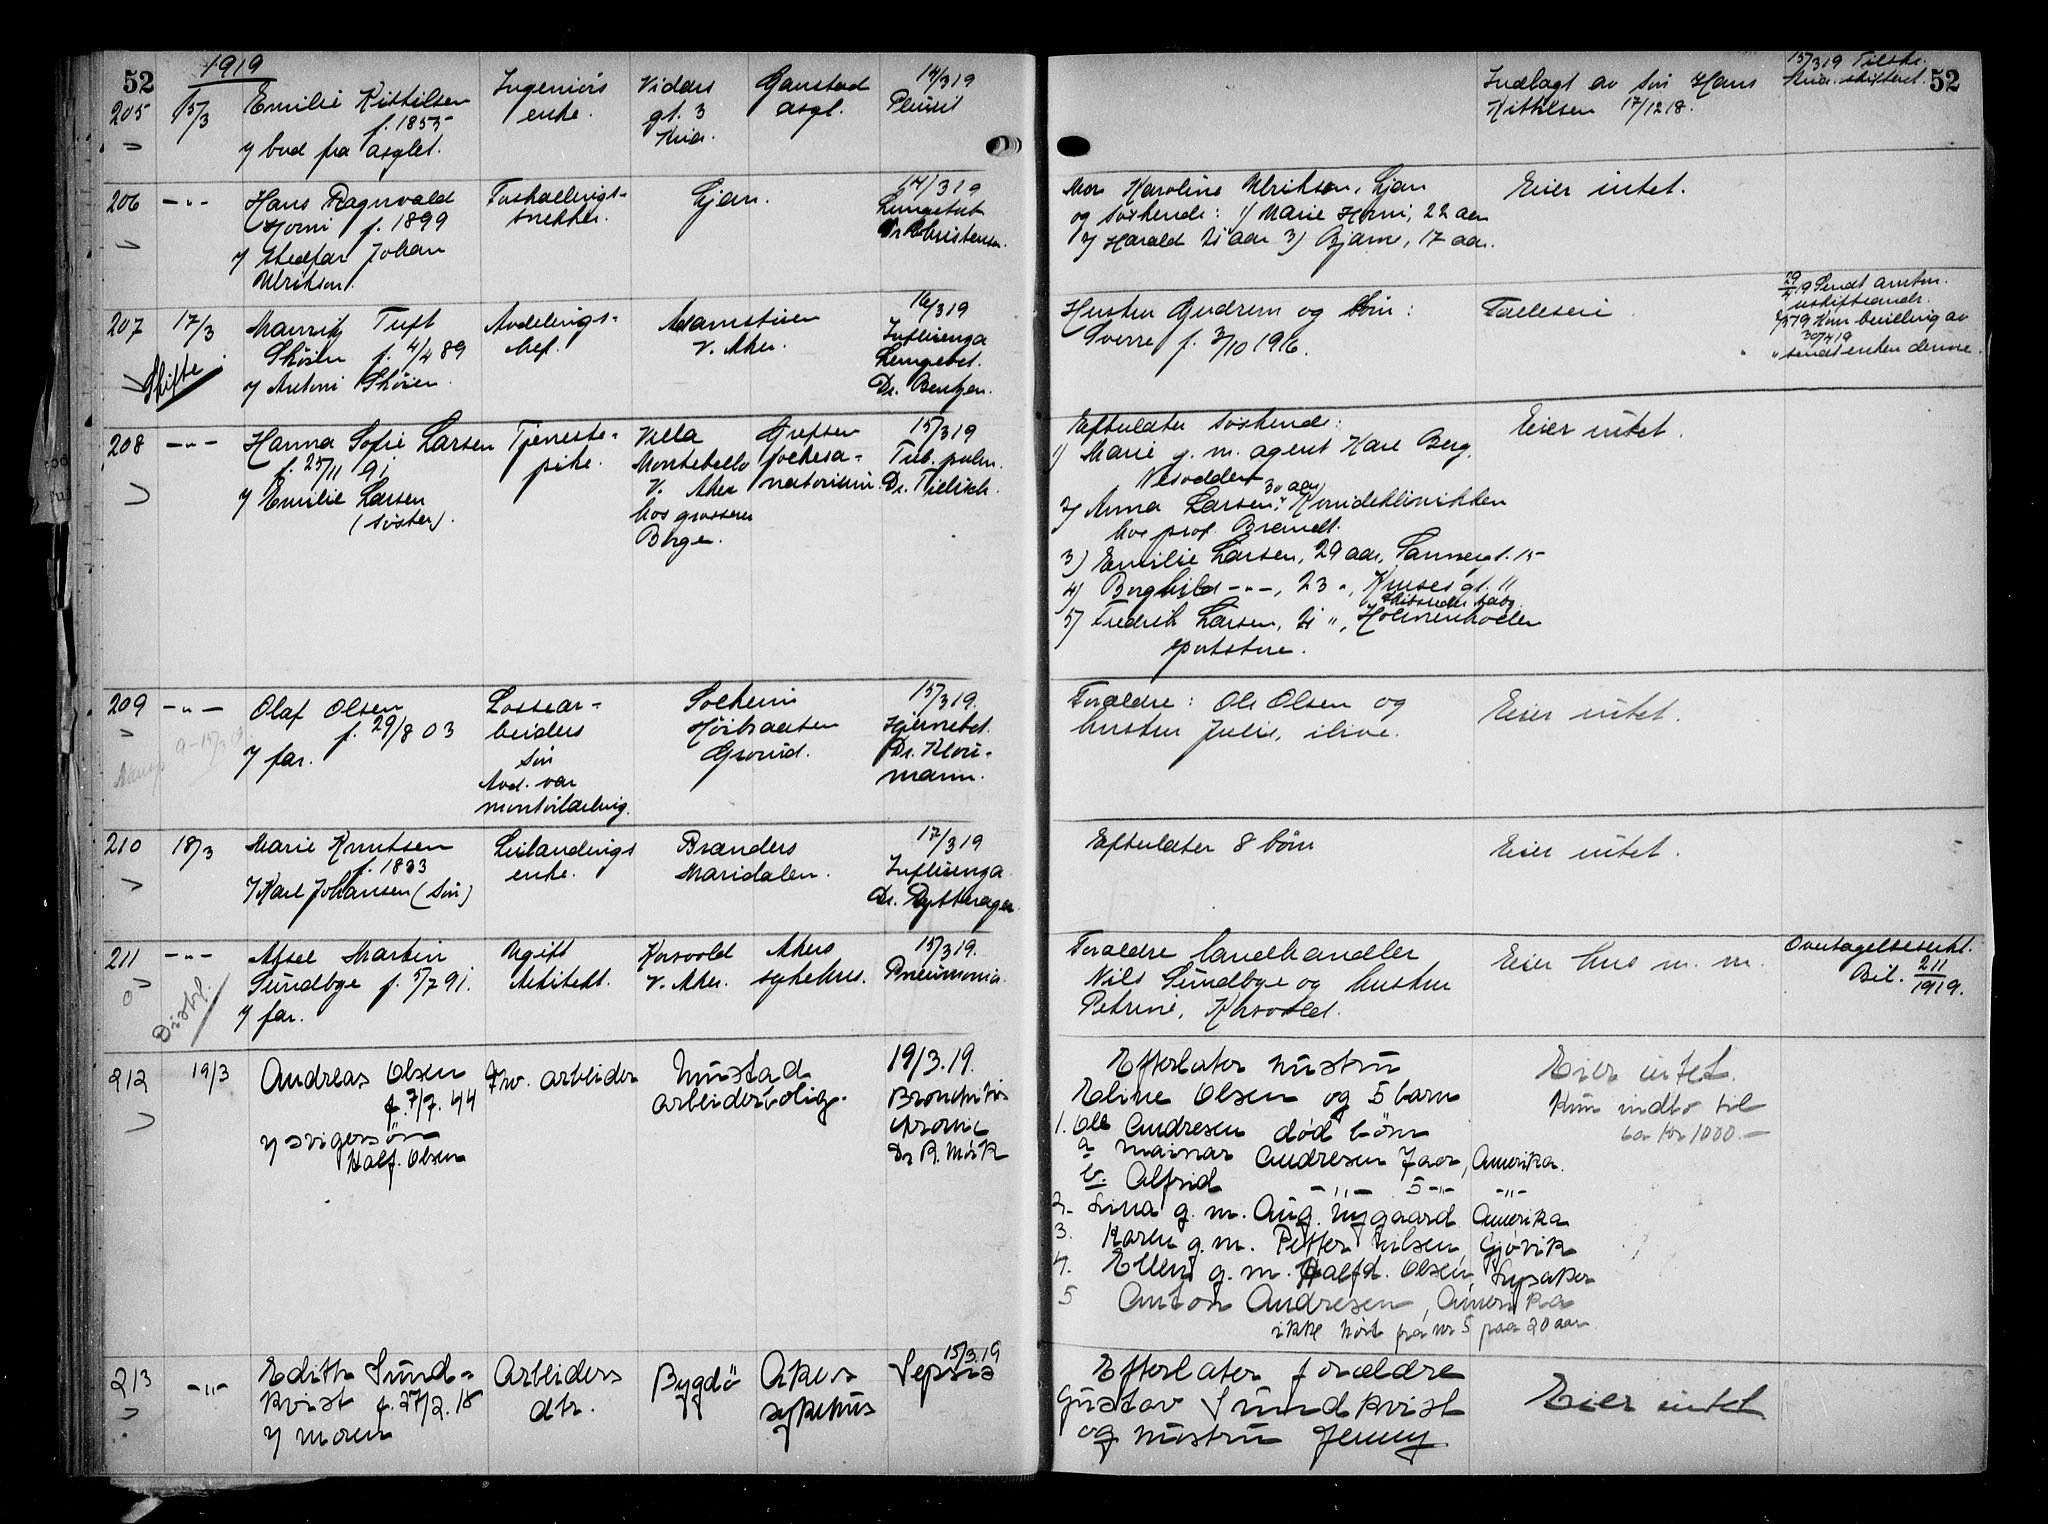 52
1919
205
15/3
Emilie Kittilsen
f. 1855
v/ bud fra asylet.
Ingeniørs
enke.
Vidars
gt. 3
Kria.
Gaustad
asyl.
14/3 19
Pleurit
Indlagt av søn Hans
Kittilsen 17/12 18.
15/3 19 Tilskr.
Kria. skifteret.
52
206
-"-
Hans Ragnvald
Horni f. 1899
v/ Stedfar Johan
Ulriksen.
snekker.
Ljan.
14/3 19
Dr Christensen.
Mor Karoline Ulriksen, Ljan
og søskende: 1) Marie Horni, 22 aar
2) Harald 21 aar 3) Bjarne, 17 aar.
Eier intet.
207
17/3
Skifte
Tuft
Skøien f. 4/4 89
v/ Antoni Skøien.
Avdelings-
chef.
V. Aker.
16/3 19
Influenga
Lungebet.
Dr. Bentzen.
Hustru Gudrun og barn:
Sverre f. 3/10 1916.
Fælleseie.
29/4 19 Sendt amtm.
uskifteandr.
7/5 19 Kom bevilling av
30/4 19
" sendt enken denne.
208
-"-
Hanna Sofie Larsen
f. 25/11 91
v/ Emilie Larsen
(søster).
Tjeneste-
pike.
Villa
Montebello
V. Aker
hos grosserer
Berge.
Grefsen
folkesa-
natorium.
15/3 19
Tub. pulm.
Dr. Tillisch.
Efterlater søskende:
1) Marie g. m. agent Karl Berg,
Nesodden
2) Anna Larsen, 30 aar, Kvindeklinikken
hos prof. Brandt.
3) Emilie Larsen, 29 aar, Sannergt. 15
4) Borghild -"-, 23 ", Kruses gt. 11
5) Fredrik Larsen, 21 ", Holmenkollen
sportstue.
Eier intet.
209
-"-
Olaf Olsen
f. 29/8 03
v/ far.
Lossear-
beiders
søn
Avd. var
Solheim
Høibraaten
Grorud.
15/3 19.
Hjernebet.
Dr. Klou-
mann.
Forældre: Ole Olsen og
hustru Julie, ilive.
Eier intet.
210
18/3
Marie Knutsen
f. 1833
v/ Karl Johansen (søn)
Leilændings
enke.
Brænders
Maridalen.
17/3 19
Influenga.
Dr. Rytterager.
Efterlater 8 børn
Eier intet.
211
-"-
Axel Martin
Sundbye f. 5/7 91.
v/ far.
Ugift
Arkitekt.
Korsvold
V. Aker.
Akers
sykehus.
15/3 19.
Pneumonia.
Forældre landhandler
Nils Sundbye og hustru
Petrine, Korsvold.
Eier hus m. m.
Overtagelseserkl.
Bil. 211/1919.
212
19/3
Andreas Olsen
f. 7/7. 44
v/ svigersøn
Half. Olsen
Fhv. arbeider
Mustad
arbeiderbolig.
19/3. 19.
Bronchitis
cronic
Dr R. Mörk
Efterlater hustru
Eline Olsen og 5 barn
1. Ole Andresen død börn
a Mainar Andresen 7 aar, Amerika.
b. Alfrid -"- 5 -"- -"-
2. Lina g. m. Aug. Nygaard Amerika
3. Karen g. m. Petter Nilsen, Gjövik
4. Ellen g. m. Halfd. Olsen, Lysaker
5 Anton Andresen, Amerika
ikke hört fra nr 5 paa 20 aar.
Eier intet.
Kun indbo til
ca kr 1000.-
213
-"-
Edith Sund-
kvist f. 27/2. 18
v/ moren
Arbeiders
dtr.
Bygdö
Akers
sykehus
15/3. 19
Sepsis
Efterlater forældre
Gustav Sundkvist
og hustru Jenny
Eier intet